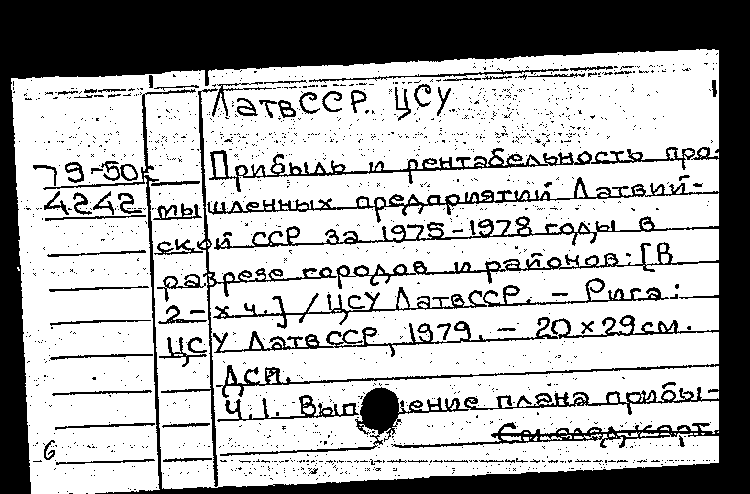 ЛатвССР. ЦСУ
79-50к Прибыль и рентабельность про-
4242 мышленных предприятий Латвий-
ской ССР за 1975-1978 годы в
разрезе городов и районов: [В
2-х ч.] / ЦСУ ЛатвССР. – Рига:
ЦСУ ЛатвССР, 1979. – 20×29см.
ДСП.
Ч.1. Вып ение плана прибы-
См.след.карт.
6